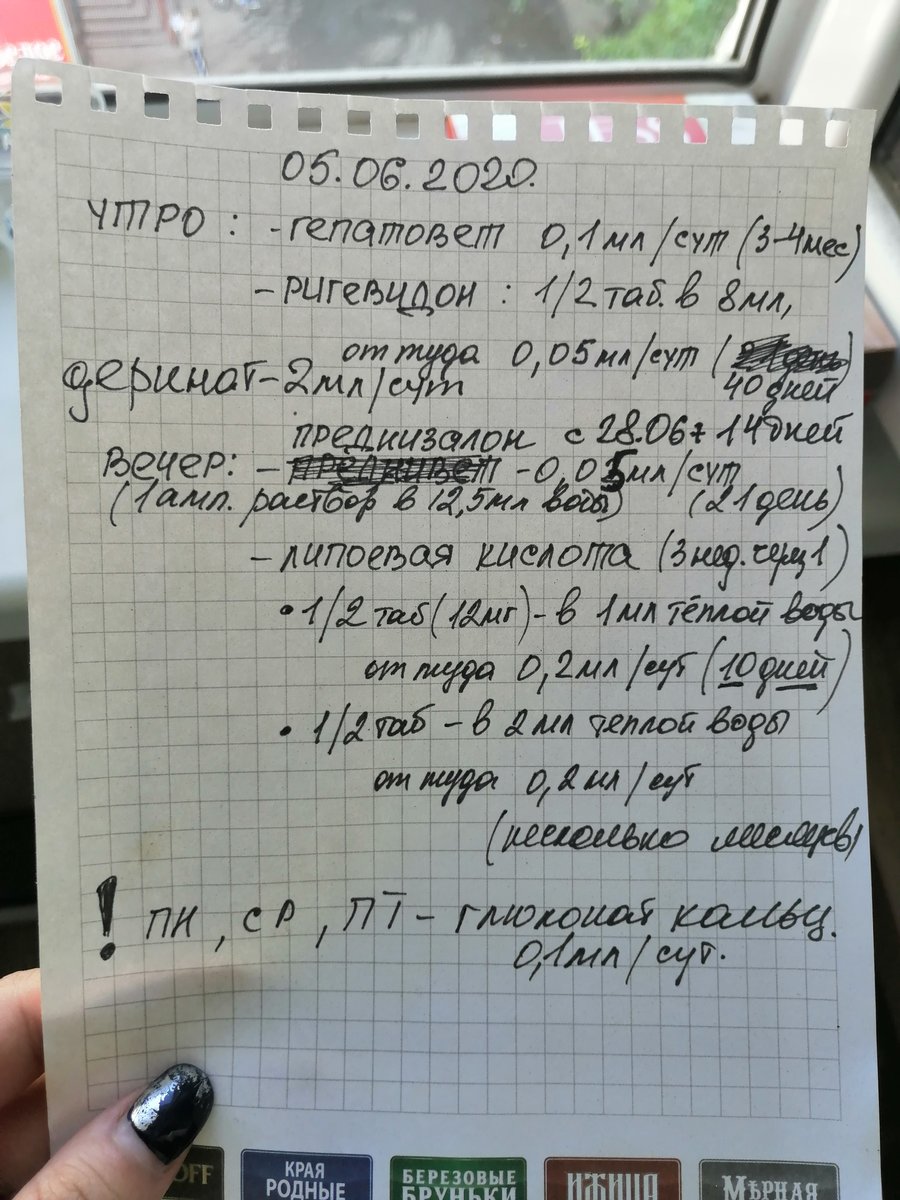 05.06.2020.
УТРО: -гепатовет 0,1мл/сут (3-4мес)
-РИГЕВИДОН: 1/2 таб. в 8мл,
от туда 0,05мл/сут (
40 дней
деринат-2мл/сут
преднизалон с 28.06 + 14 дней
Вечер: - -0,05мл/сут
(1 амл. раствор в 12,5мл воды) (21 день)
-липоевая кислота (3 нед. через 1)
• 1/2 таб (12мг)-в 1мл тёплой воды
от туда 0,2мл/сут (10 дней)
• 1/2 таб - в 2мл теплой воды
от туда 0,2мл/сут
(несколько месяцев)
! ПН, СР, ПТ- глюконат кальц.
0,1мл/сут.
OFF
КРАЯ
РОДНЫЕ
БЕРЕЗОВЫЕ
БРУНЬКИ
ИЖИЦА
МѢРНАЯ